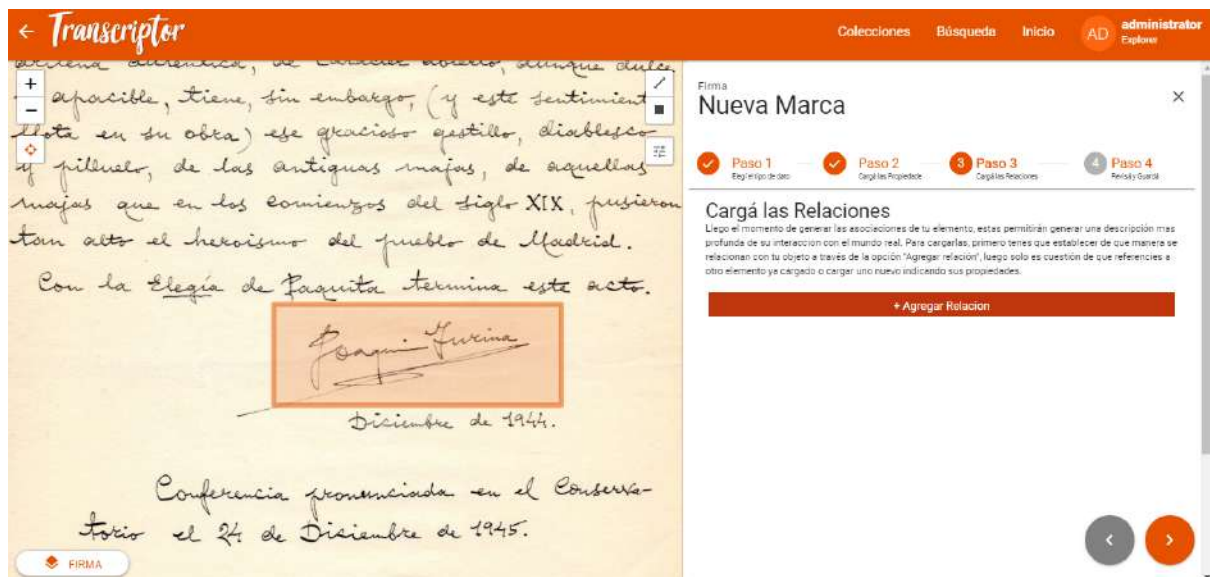 ← Transcriptor
Colecciones Búsqueda Inicio AD administrator
Explorer
auténtica, de carácter abierto, aunque dulce,
apacible, tiene, sin embargo, (y este sentimient
flota en su obra) ese gracioso gestillo, diablesco
y pilluelo, de las antiguas majas, de aquellas
majas que en los comienzos del siglo XIX, pusieron
tan alto el heroismo del pueblo de Madrid.
Con la Elegía de Paquita termina este acto.
Joaquin Turina
Diciembre de 1944.
Conferencia pronunciada en el Conserva-
torio el 24 de Diciembre de 1945.
FIRMA
Firma
Nueva Marca
Paso 1
Elegí el tipo de dato
Paso 2
Cargá las Propiedade
3 Paso 3
Cargá las Relaciones
4 Paso 4
Revisá y Guardá
Cargá las Relaciones
Llego el momento de generar las asociaciones de tu elemento, estas permitirán generar una descripción mas
profunda de su interaccion con el mundo real. Para cargarlas, primero tenes que establecer de que manera se
relacionan con tu objeto a través de la opción "Agregar relación", luego solo es cuestión de que referencies a
otro elemento ya cargado o cargar uno nuevo indicando sus propiedades.
+ Agregar Relacion